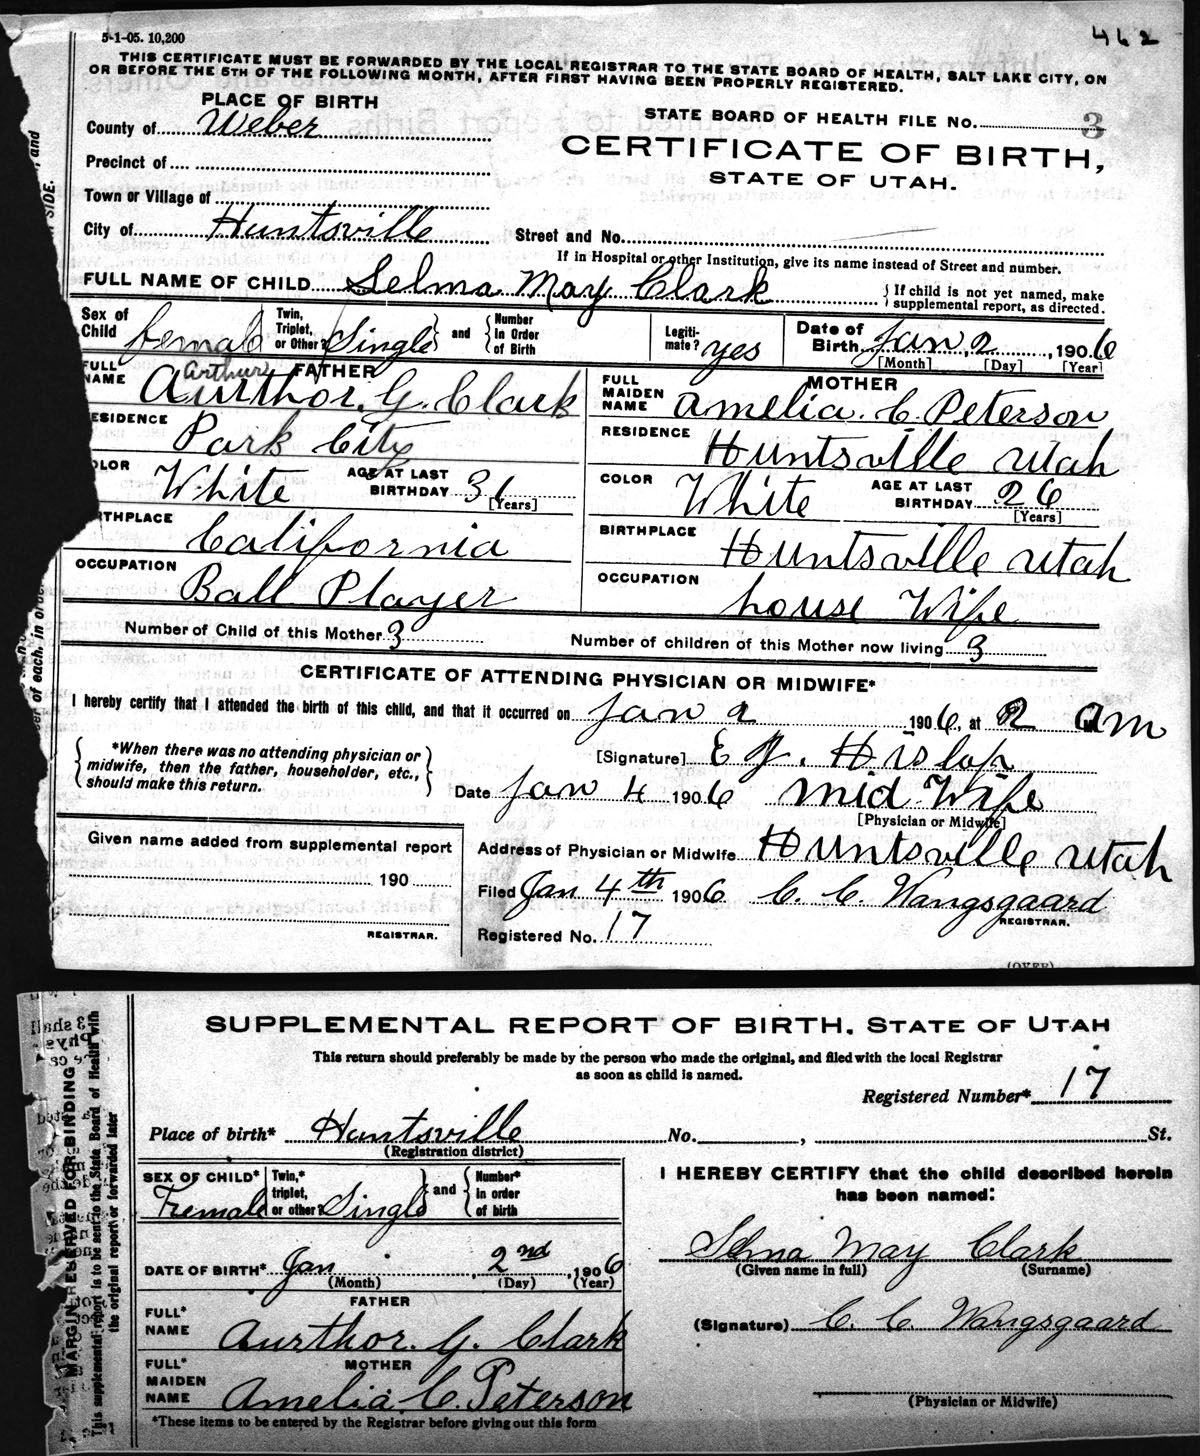 5-1-05. 10,200
462
THIS CERTIFICATE MUST BE FORWARDED BY THE LOCAL REGISTRAR TO THE STATE BOARD OF HEALTH, SALT LAKE CITY, ON
OR BEFORE THE 5TH OF THE FOLLOWING MONTH, AFTER FIRST HAVING BEEN PROPERLY REGISTERED.
PLACE OF BIRTH
County of Weber
STATE BOARD OF HEALTH FILE No. 3
CERTIFICATE OF BIRTH,
STATE OF UTAH.
Precinct of
Town or Village of
City of Huntsville
Street and No.
If in Hospital or other Institution, give its name instead of Street and number.
FULL NAME OF CHILD Selma May Clark
{ If child is not yet named, make
supplemental report, as directed.
Sex of Child female
Twin, Triplet, or Other? Single } and { Number In Order of Birth
Legiti-mate? yes
Date of Birth Jan, 2, 1906
[Month] [Day] [Year]
FATHER
FULL NAME Aurthor. G. Clark
Arthur
MOTHER
FULL MAIDEN NAME Amelia. C. Peterson
RESIDENCE Park City
RESIDENCE Huntsville Utah
COLOR White
AGE AT LAST BIRTHDAY 31 [Years]
COLOR White
AGE AT LAST BIRTHDAY 26 [Years]
BIRTHPLACE California
BIRTHPLACE Huntsville Utah
OCCUPATION Ball Player
OCCUPATION house Wife
Number of Child of this Mother 3
Number of children of this Mother now living 3
CERTIFICATE OF ATTENDING PHYSICIAN OR MIDWIFE*
I hereby certify that I attended the birth of this child, and that it occurred on Jan 2 1906, at 2 am
{ *When there was no attending physician or
midwife, then the father, householder, etc.,
should make this return. }
[Signature] E J. Hislop
Date Jan 4 1906 mid Wife
[Physician or Midwife]
Given name added from supplemental report
190
REGISTRAR.
Address of Physician or Midwife Huntsville Utah
Filed Jan 4th 1906 C. C. Wangsgaard
REGISTRAR.
Registered No. 17
(OVER)
SUPPLEMENTAL REPORT OF BIRTH, STATE OF UTAH
This return should preferably be made by the person who made the original, and filed with the local Registrar
as soon as child is named.
Registered Number* 17
Place of birth* Huntsville No. , St.
(Registration district)
SEX OF CHILD* Female
Twin,* triplet, or other? Single } and { Number* in order of birth
DATE OF BIRTH* Jan 2nd, 1906
(Month) (Day) (Year)
FATHER
FULL* NAME Aurthor. G. Clark
MOTHER
FULL* MAIDEN NAME Amelia. C. Peterson
*These items to be entered by the Registrar before giving out this form
I HEREBY CERTIFY that the child described herein
has been named:
Selma May Clark
(Given name in full) (Surname)
(Signature) C. C. Wangsgaard
(Physician or Midwife)
MARGIN RESERVED FOR BINDING
This supplemental report is to be sent to the State Board of Health with
the original report or forwarded later